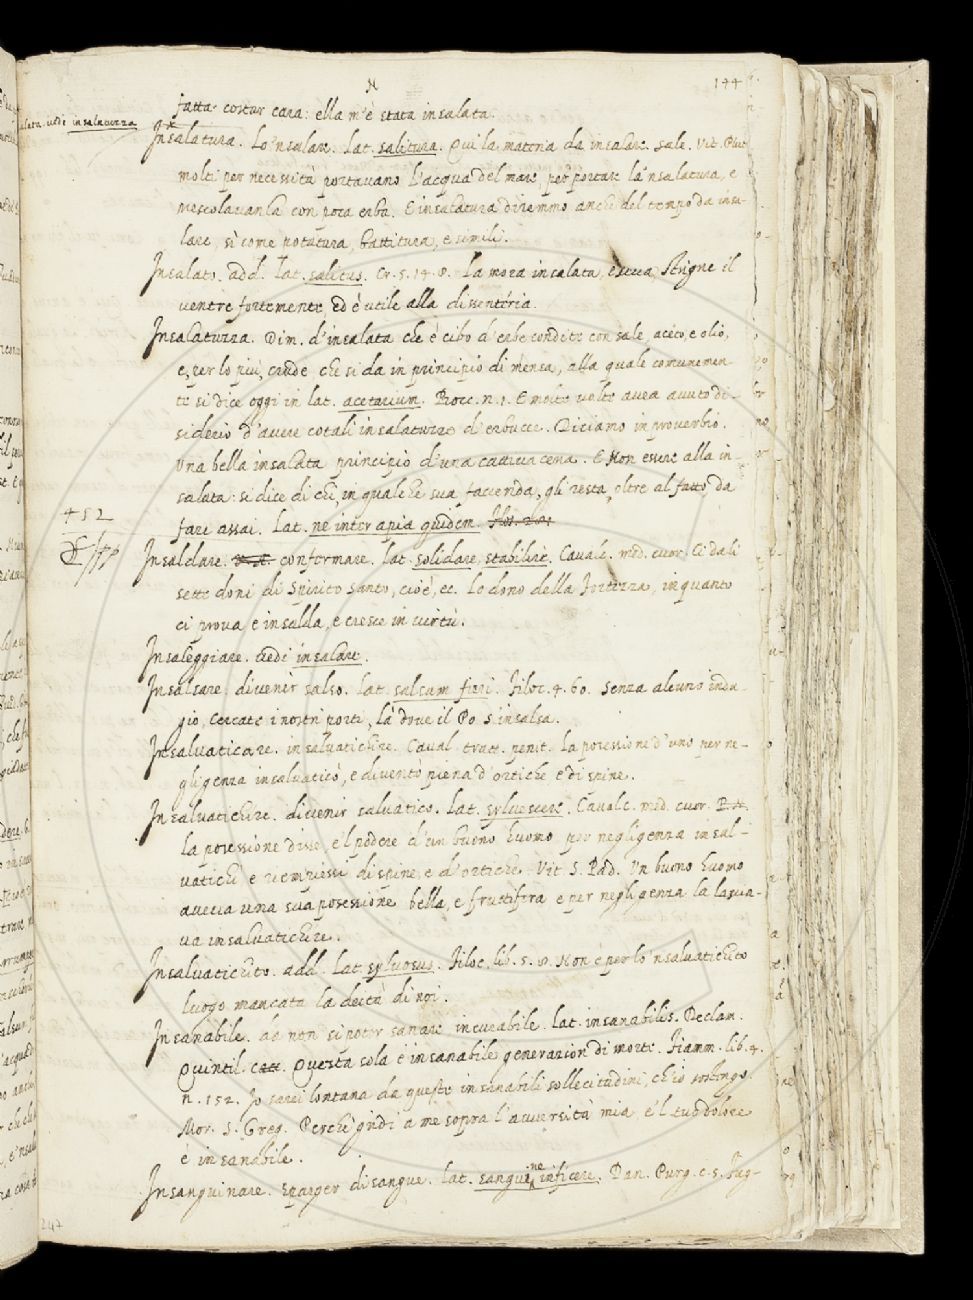 N
144
fatta costar cara: ella m'è stata insalata.
insalata. vedi insalatuzza
Insalatura. Lo 'nsalare. Lat. salitura. Qui la materia da insalare. Sale. Vit. Plut.
molti per necessità portavano l'acqua del mare, per portare la 'nsalatura, e
mescolavanla con poca erba. E insalatura diremmo anche del tempo da insa-
lare, sì come potatura, battitura, e simili.
Insalato. add. Lat. salitus. Cr. 5. 14. 8. La mora insalata, e secca, strigne il
ventre fortemente ed è utile alla dissentéria.
Insalatuzza. Dim. d'insalata che è cibo d'erbe condite con sale, aceto, e olio,
e, per lo più, crude che si da in principio di mensa, alla quale comunemen-
te si dice oggi in lat. acetarium. Bocc. n. 1. E molte volte avea avuto di-
siderio d'avere cotali insalatuzze d'erbucce. Diciamo in proverbio.
Una bella insalata principio d'una cattiva cena. E Non essere alla in-
salata: si dice di chi, in qualche sua faccenda, gli resta, oltre al fatto, da
452
fare assai. Lat. ne inter apia quidem.
Insaldare. conformare. lat. solidare, stabilire. Cavalc. med. cuor. Ci da li
sette doni di Spirito Santo, cioè, ec. Lo dono della fortezza, in quanto
ci prova e insalda, e cresce in virtù.
Insaleggiare. vedi insalare.
Insalsare. divenir salso. lat. salsum fieri. Filoc. 4. 60. Senza alcuno indu-
gio, cercate i nostri porti, là dove il Po s'insalsa.
Insalvaticare. insalvatichire. Caval. tratt. penit. la posessione d'uno per ne-
gligenza insalvaticò, e diventò piena d'ortiche e di spine.
Insalvatichire. divenir salvatico. Lat. sylvescere. Cavalc. med. cuor.
la posessione disse, e 'l podere d'un buono huomo per negligenza insal-
vatichì e riempiessi di spine, e d'ortiche. Vit. S. Pad. Un buono huomo
aveva una sua posessione bella, e fruttifera e per negligenza la lascia-
va insalvatichire.
Insalvatichito. add. Lat. sylvosus. Filoc. lib. 5. Non è per lo 'nsalvatichito
luogo mancata la deità di noi.
Insanabile. da non si poter sanare incurabile. Lat. insanabilis. Declam.
Quintil. Questa sola è insanabile generazion di morte. Fiamm. lib. 4.
n. 152. Io sarei lontana da queste insanabili sollecitudini, ch'io sostengo.
Mor. S. Greg. Perchè gridi a me sopra l'avversità mia e 'l tuo dolore
è insanabile.
Insanguinare. Sparger di sangue. lat. sanguine inficere. Dan. Purg. c. 5. Fug-
247